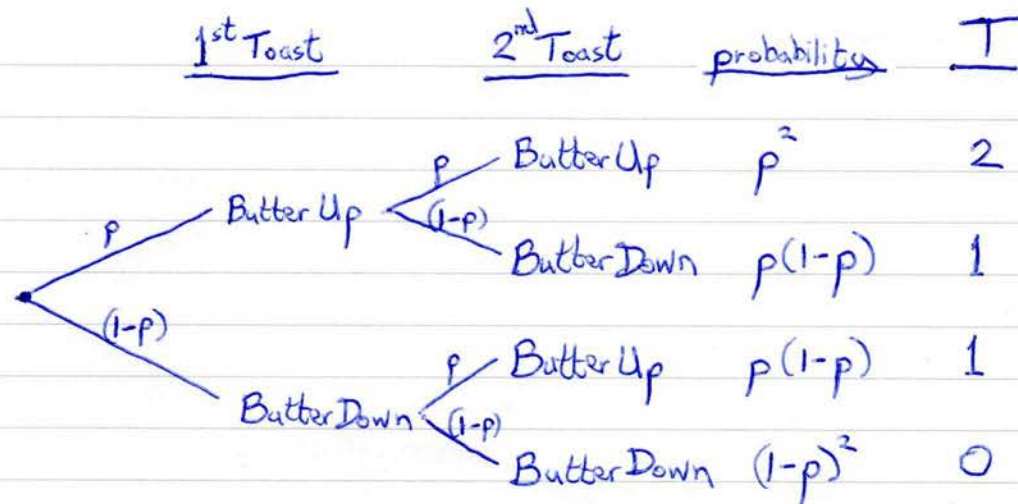 1st Toast 2nd Toast probability T
p Butter Up p² 2
p Butter Up (1-p)
Butter Down p(1-p) 1
(1-p) p Butter Up p(1-p) 1
Butter Down (1-p)
Butter Down (1-p)² 0